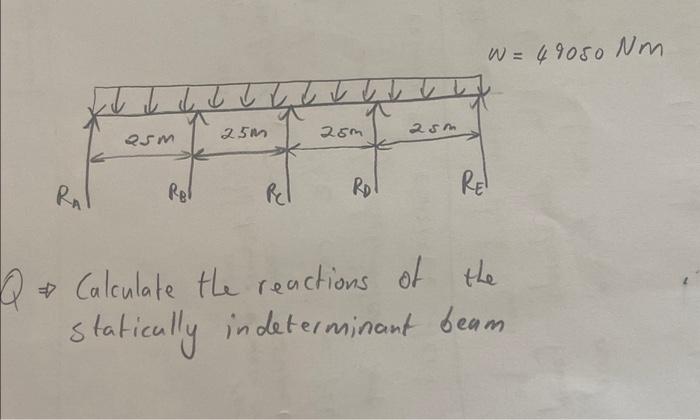 W = 49050 Nm
25m 25m 25m 25m
RA RB RC RD RE
Q ⇒ Calculate the reactions of the
statically indeterminant beam